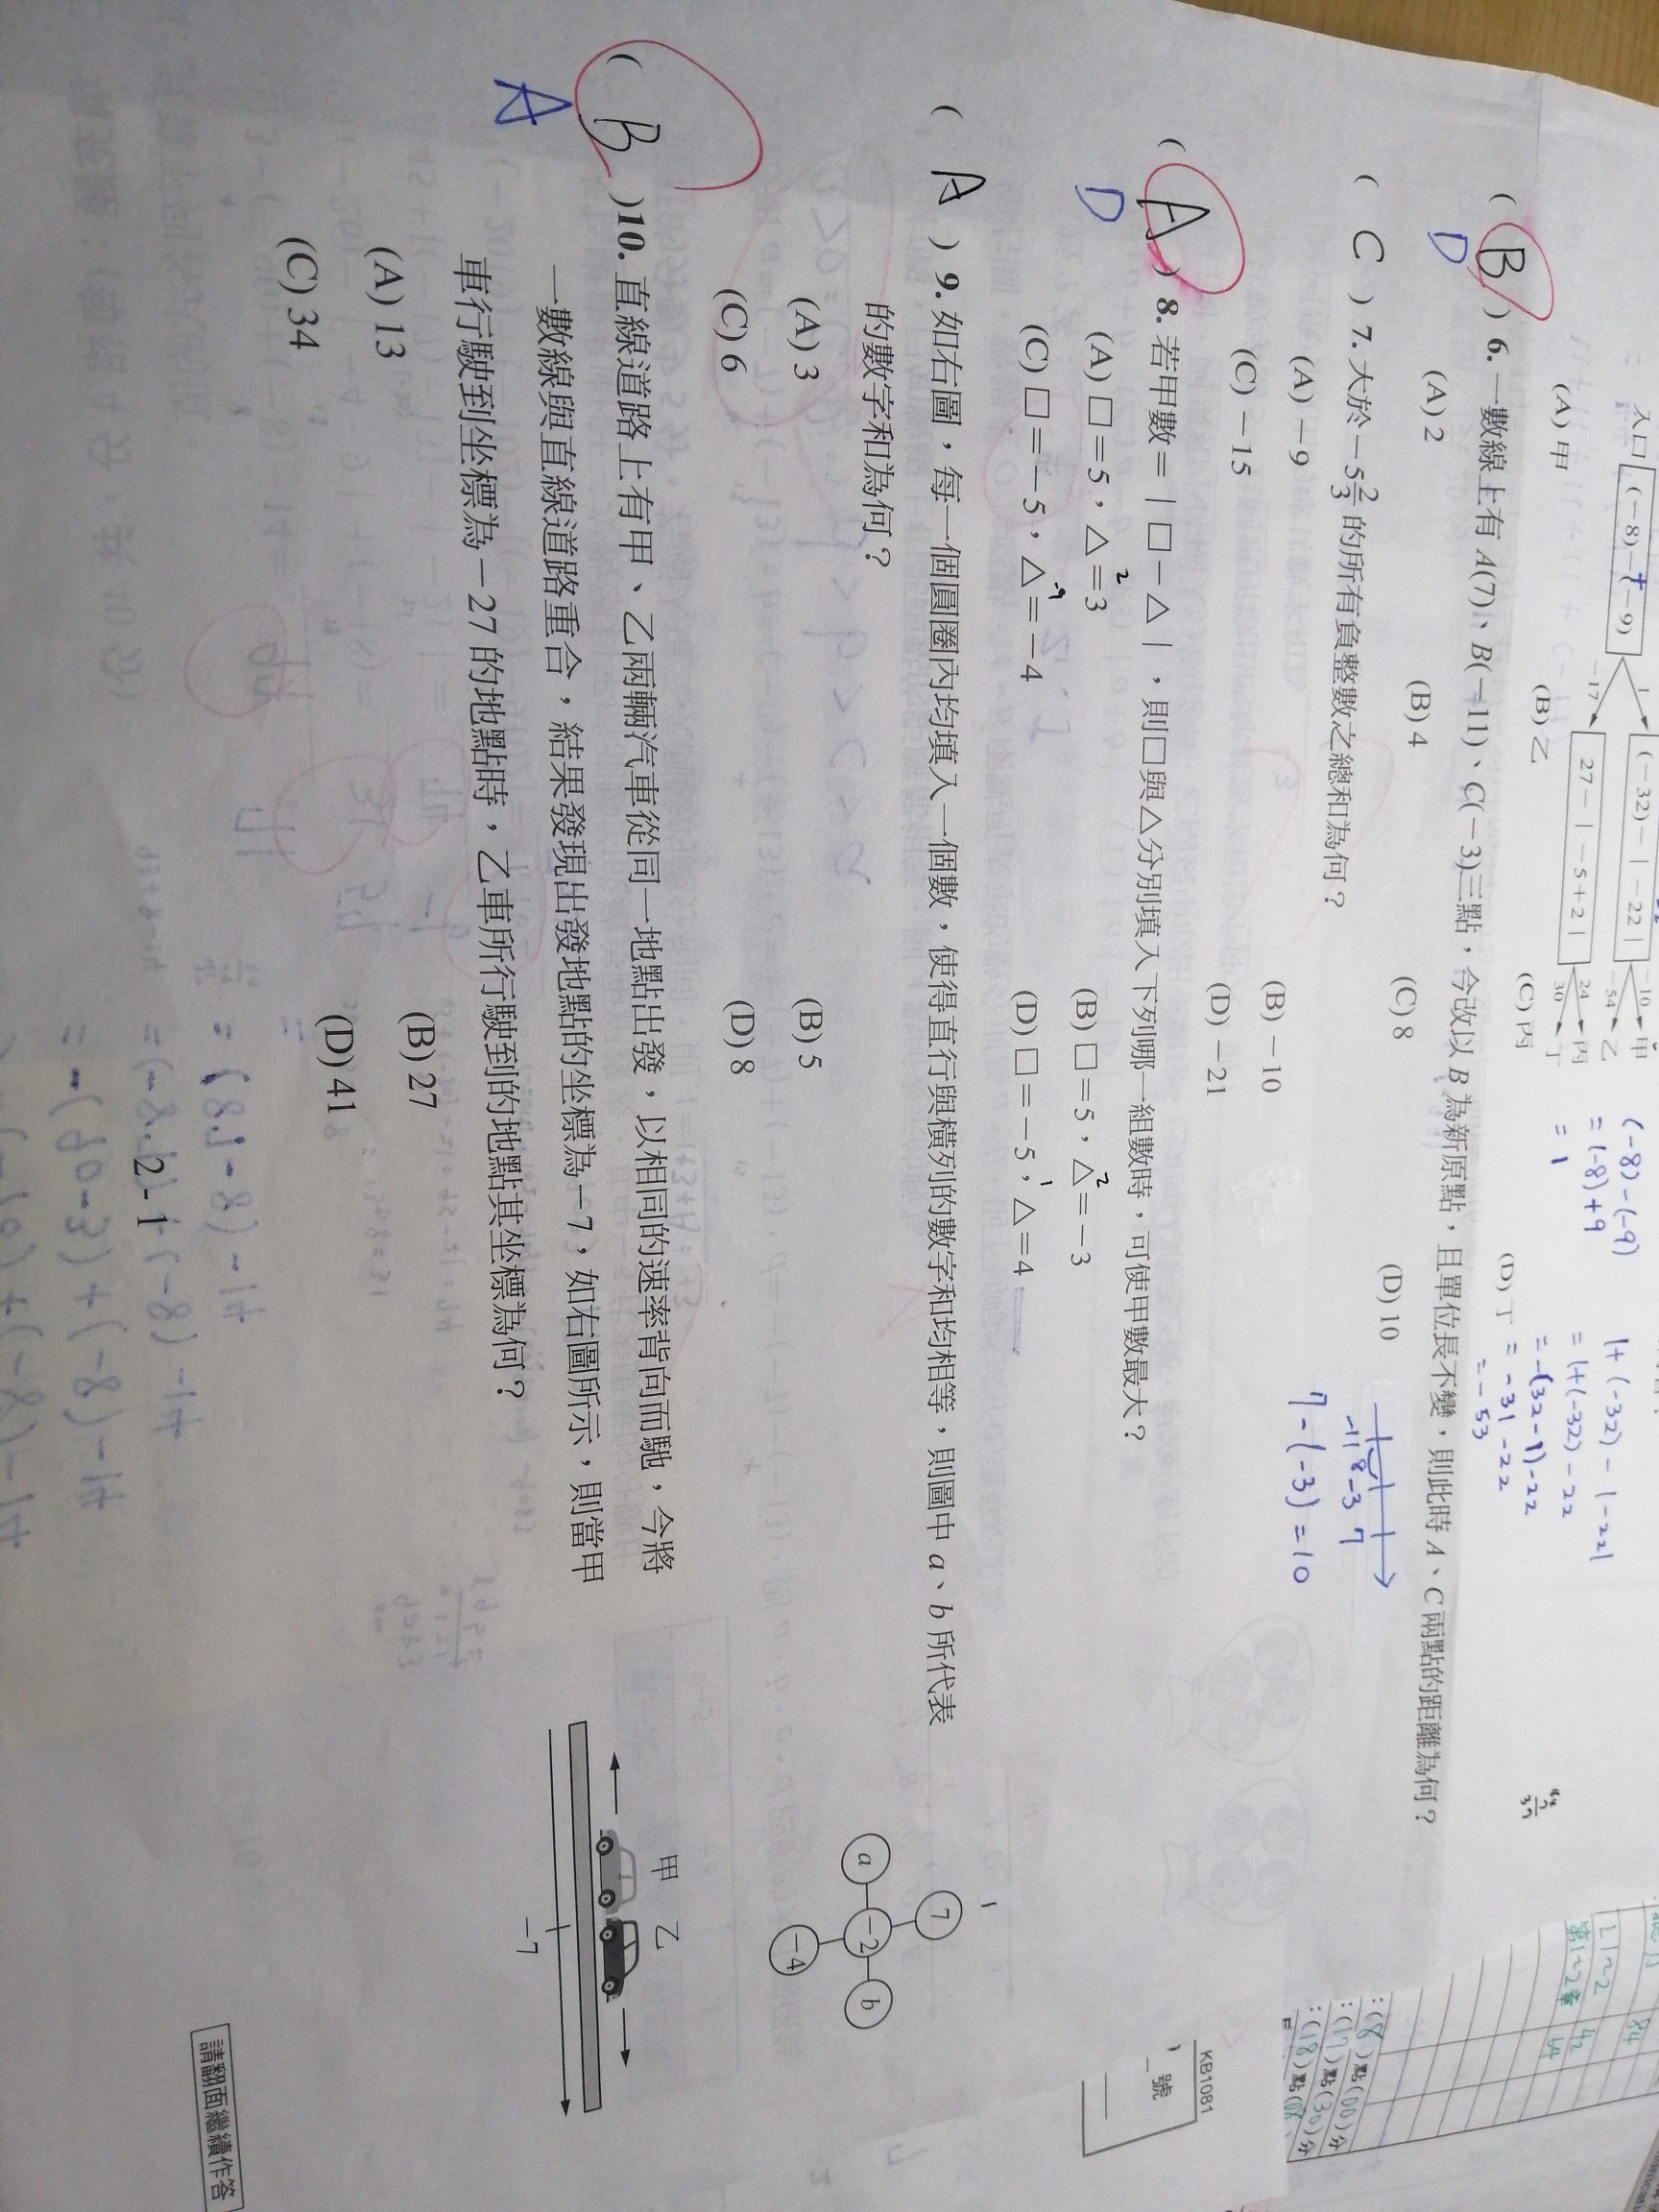 入口
(−8)−(−9)
1
−17
(−32)−|−22|
27−|−5+2|
−10
−54
24
30
甲
乙
丙
丁
(A) 甲
(B) 乙
(C) 丙
(D) 丁
(−8)−(−9)
=(−8)+9
= 1
1+(−32)−|−22|
=1+(−32)−22
=−(32−1)−22
= −31−22
= −53
( B ) 6. 一數線上有 A(7)、B(−11)、C(−3)三點,今改以 B 為新原點,且單位長不變,則此時 A、C 兩點的距離為何?
D
(A) 2
(B) 4
(C) 8
(D) 10
−11 8 −3 7
7−(−3)=10
( C ) 7. 大於−5 2/3 的所有負整數之總和為何?
(A) −9
(B) −10
(C) −15
(D) −21
( A ) 8. 若甲數=|□−△|,則□與△分別填入下列哪一組數時,可使甲數最大?
D
(A) □=5,△=3
2
(B) □=5,△=−3
2
(C) □=−5,△=−4
-9
(D) □=−5,△=4
1
( A ) 9. 如右圖,每一個圓圈內均填入一個數,使得直行與橫列的數字和均相等,則圖中 a、b 所代表
的數字和為何?
(A) 3
(B) 5
(C) 6
(D) 8
7
a
−2
b
−4
( B )10. 直線道路上有甲、乙兩輛汽車從同一地點出發,以相同的速率背向而馳,今將
A
一數線與直線道路重合,結果發現出發地點的坐標為−7,如右圖所示,則當甲
車行駛到坐標為−27 的地點時,乙車所行駛到的地點其坐標為何?
(A) 13
(B) 27
(C) 34
(D) 41
甲
乙
−7
2-1
請翻面繼續作答
KB1081
號
1~2
第1~2章
84
42
64
:(8)點(00)分
:(17)點(30)分
:(18)點